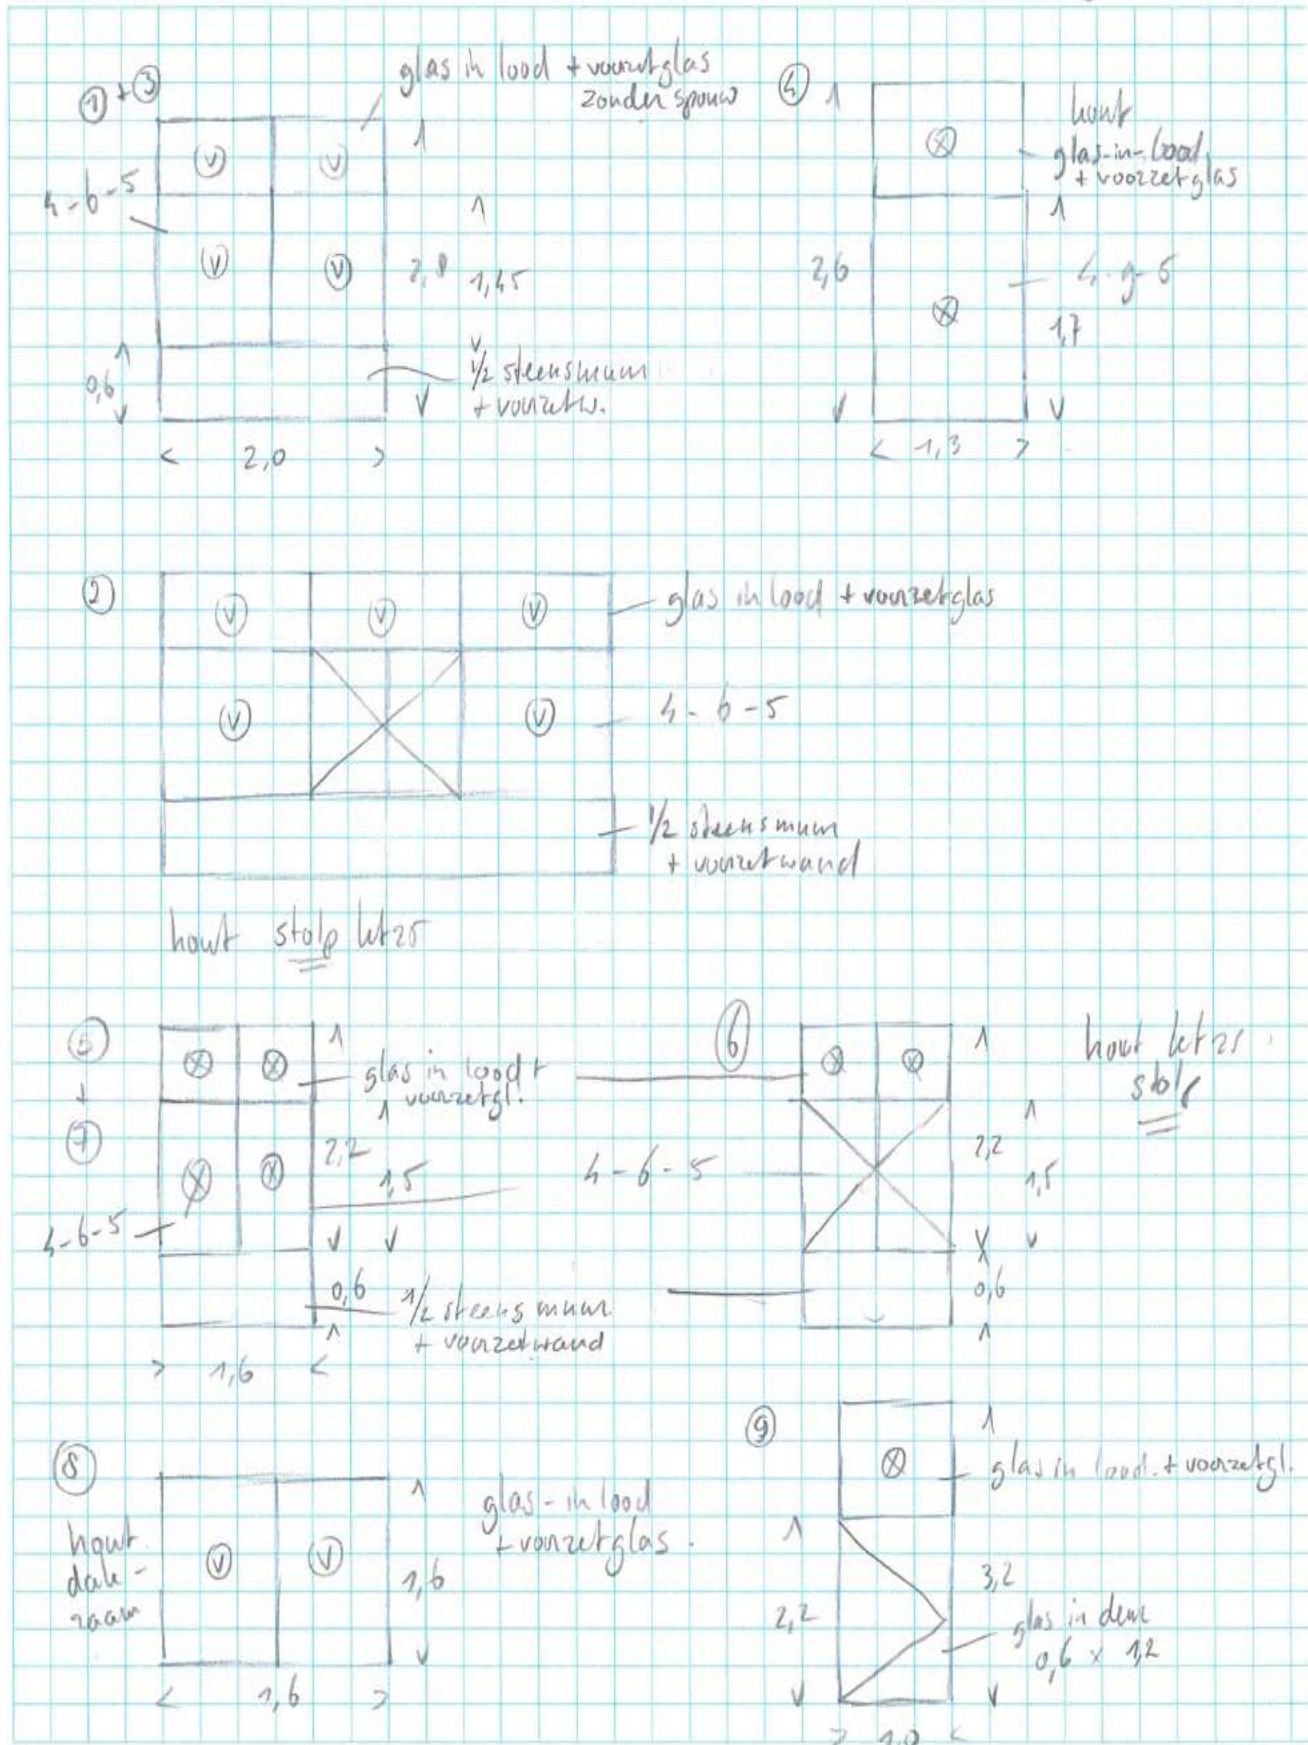 ① + ③
glas in lood + voorzetglas
zonder spouw
4-6-5
V V
V V
2,8
1,45
0,6
1/2 steensmuur
+ voorzetw.
2,0
④
hout
glas-in-lood
+ voorzetglas
2,6
4-9-5
1,7
1,3
②
V V V
V V
glas in lood + voorzetglas
4-6-5
1/2 steensmuur
+ voorzetwand
hout stolp
⑤
+
⑦
glas in lood +
voorzetgl.
2,2
1,5
4-6-5
0,6
1/2 steensmuur
+ voorzetwand
1,6
⑥
hout
stolp
4-6-5
2,2
1,5
0,6
⑧
hout
dak-
raam
V V
glas-in lood
+ voorzetglas.
1,6
1,6
⑨
glas in lood. + voorzetgl.
2,2
3,2
glas in deur
0,6 x 1,2
1,0